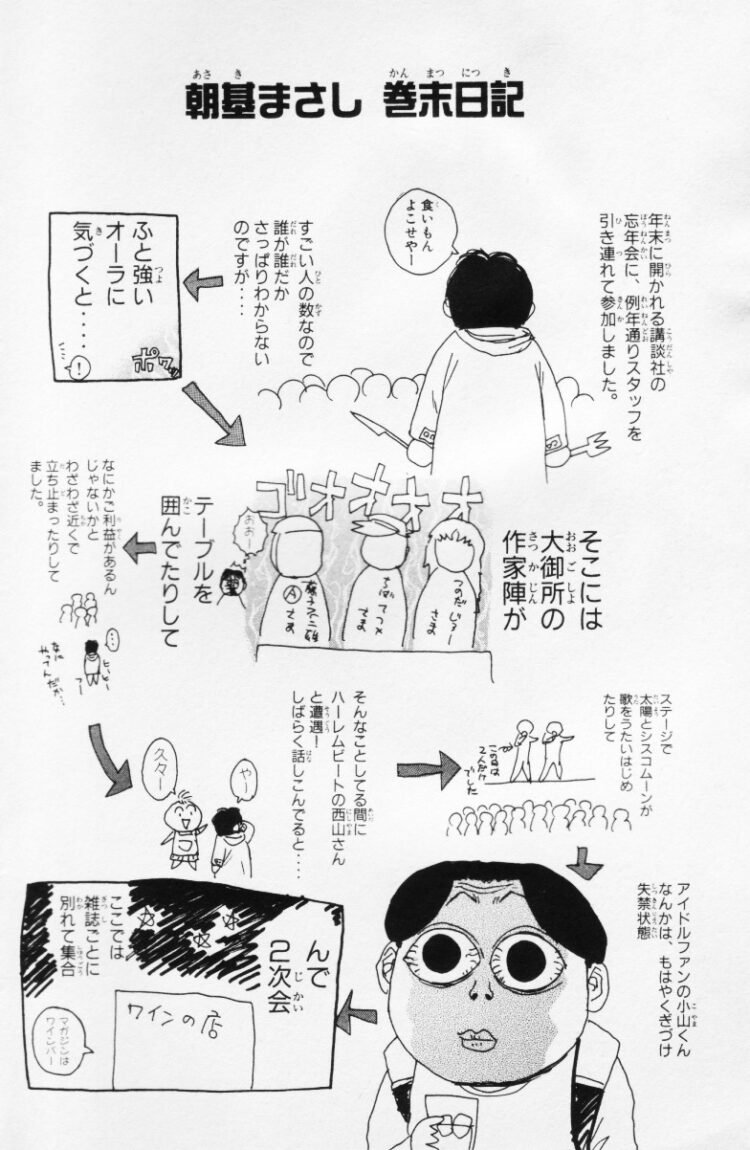 朝基まさし 巻末日記
年末に開かれる講談社の
忘年会に、例年通りスタッフを
引き連れて参加しました。
食いもん
よこせやー
すごい人の数なので
誰が誰だか
さっぱりわからない
のですが‥‥
ふと強い
オーラに
気づくと‥‥
ポワッ
!
そこには
大御所の
作家陣が
ゴオオオオオ
つのだじろー
さま
ちばてつや
さま
藤子不二雄
Ⓐさま
おおー
テーブルを
囲んでたりして
なにかご利益があるん
じゃないかと
わざわざ近くで
立ち止まったりして
ました。
…
なに
やってんだか…
久々ー
やー
そんなことしてる間に
ハーレムビートの西山さん
と遭遇!
しばらく話しこんでると‥‥
ステージで
太陽とシスコムーンが
歌をうたいはじめ
たりして
この日は
2人だけ
でした
アイドルファンの小山くん
なんかは、もはやくぎづけ
失禁状態
んで
2次会
ここでは
雑誌ごとに
別れて集合
ワインの店
マガジンは
ワインバー